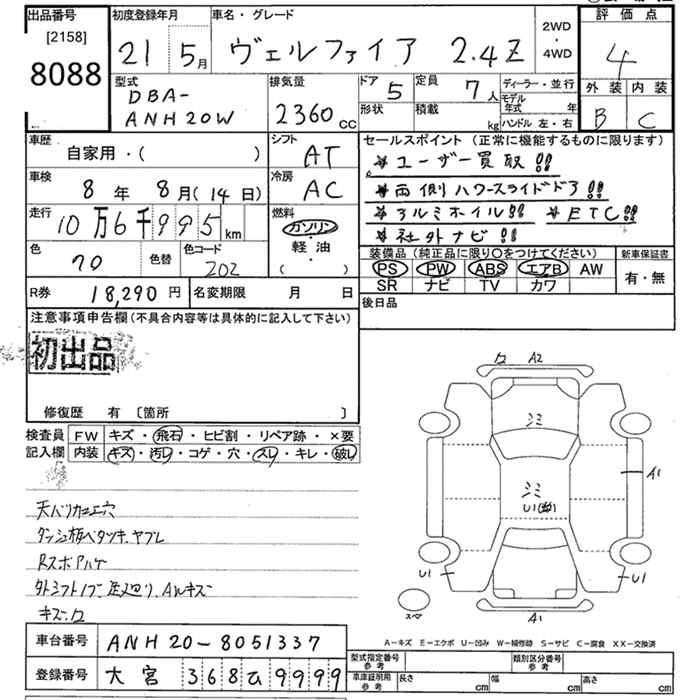 出品番号 初度登録年月 車名・グレード 2WD・4WD 評価点
[2158]
8088 21 5月 ヴェルファイア 2.4Z 4
型式 排気量 ドア 定員 ディーラー・並行 外装 内装
DBA-
ANH20W 2360cc 5 7人 モデル年式 年 B C
形状 積載 kg ハンドル 左・右
車歴 シフト セールスポイント(正常に機能するものに限ります)
自家用・( ) AT ユーザー買取!!
車検 冷房 両側パワースライドドア!!
8年 8月(14日) AC アルミホイル!! ETC!!
走行 燃料 社外ナビ!!
10万6千995km ガソリン・軽油 ( )
色 色替 色コード 装備品(純正品に限り○をつけてください) 新車保証書
202 PS PW ABS エアB AW 有・無
SR ナビ TV カワ
R券 18,290円 名変期限 月 日 後日品
注意事項申告欄(不具合内容等は具体的に記入して下さい)
初出品
修復歴 有 〔箇所 〕
検査員記入欄 FW キズ・飛石・ヒビ割・リペア跡・×要
内装 キズ・汚レ・コゲ・穴・スレ・キレ・破レ
ワ A2
シミ
シミ
A1
U1
U1
U1
A1
ダッシュ板ベタツキ、ヤブレ
キズ・ワ
A-キズ E-エクボ U-凹み W-補修跡 S-サビ C-腐食 XX-交換済
車台番号 ANH20-8051337 型式指定番号 参考 類別区分番号 参考
登録番号 大宮 368 ひ 9999 車庫証明用 参考 長さ cm 幅 cm 高さ cm